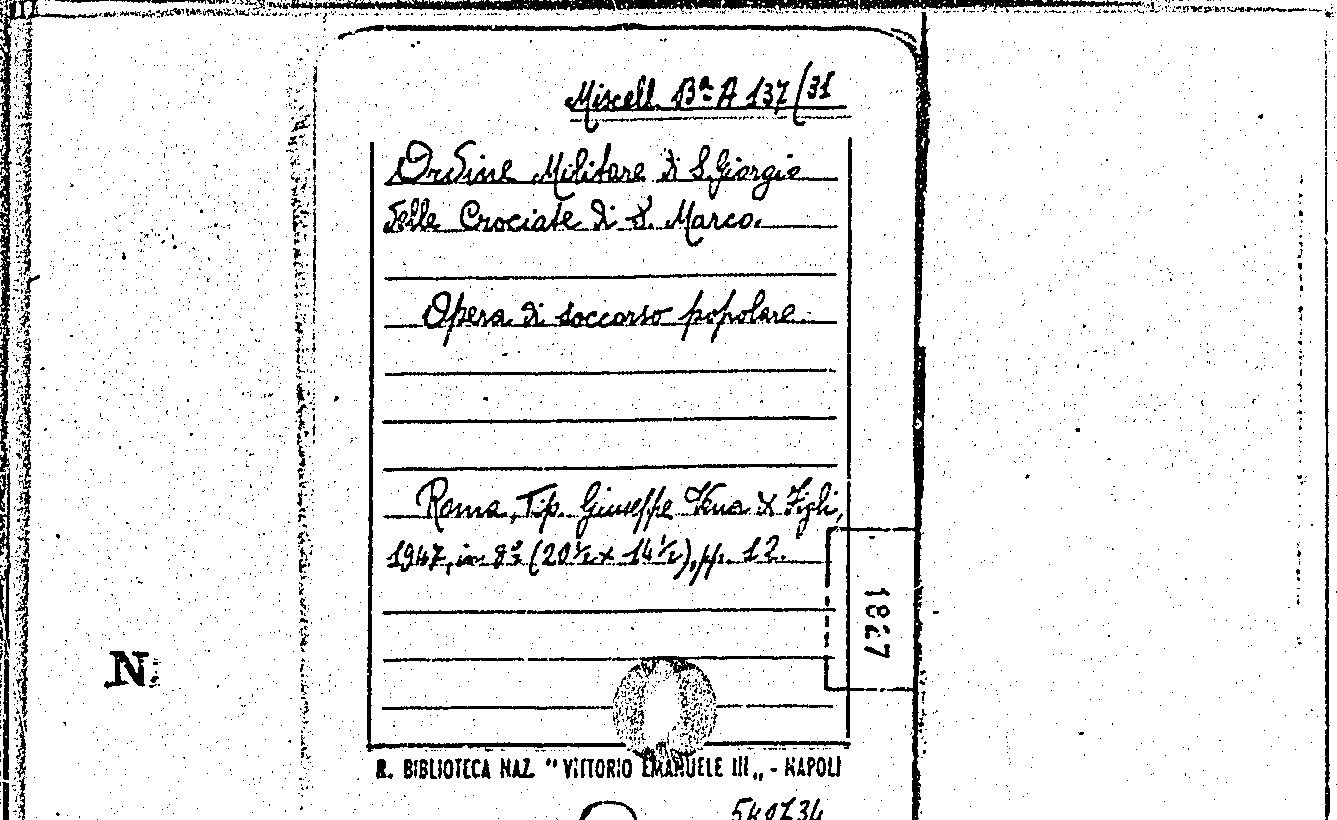 Miscell. Bª A 137/31
Ordine Militare di S. Giorgio
delle Crociate di S. Marco.
Opera di soccorso popolare
Roma, Tip. Giuseppe Vena & Figli,
1947, in 8º (20½ x 14½), pp. 12.
1827
N.
R. BIBLIOTECA NAZ. "VITTORIO EMANUELE III„ - NAPOLI